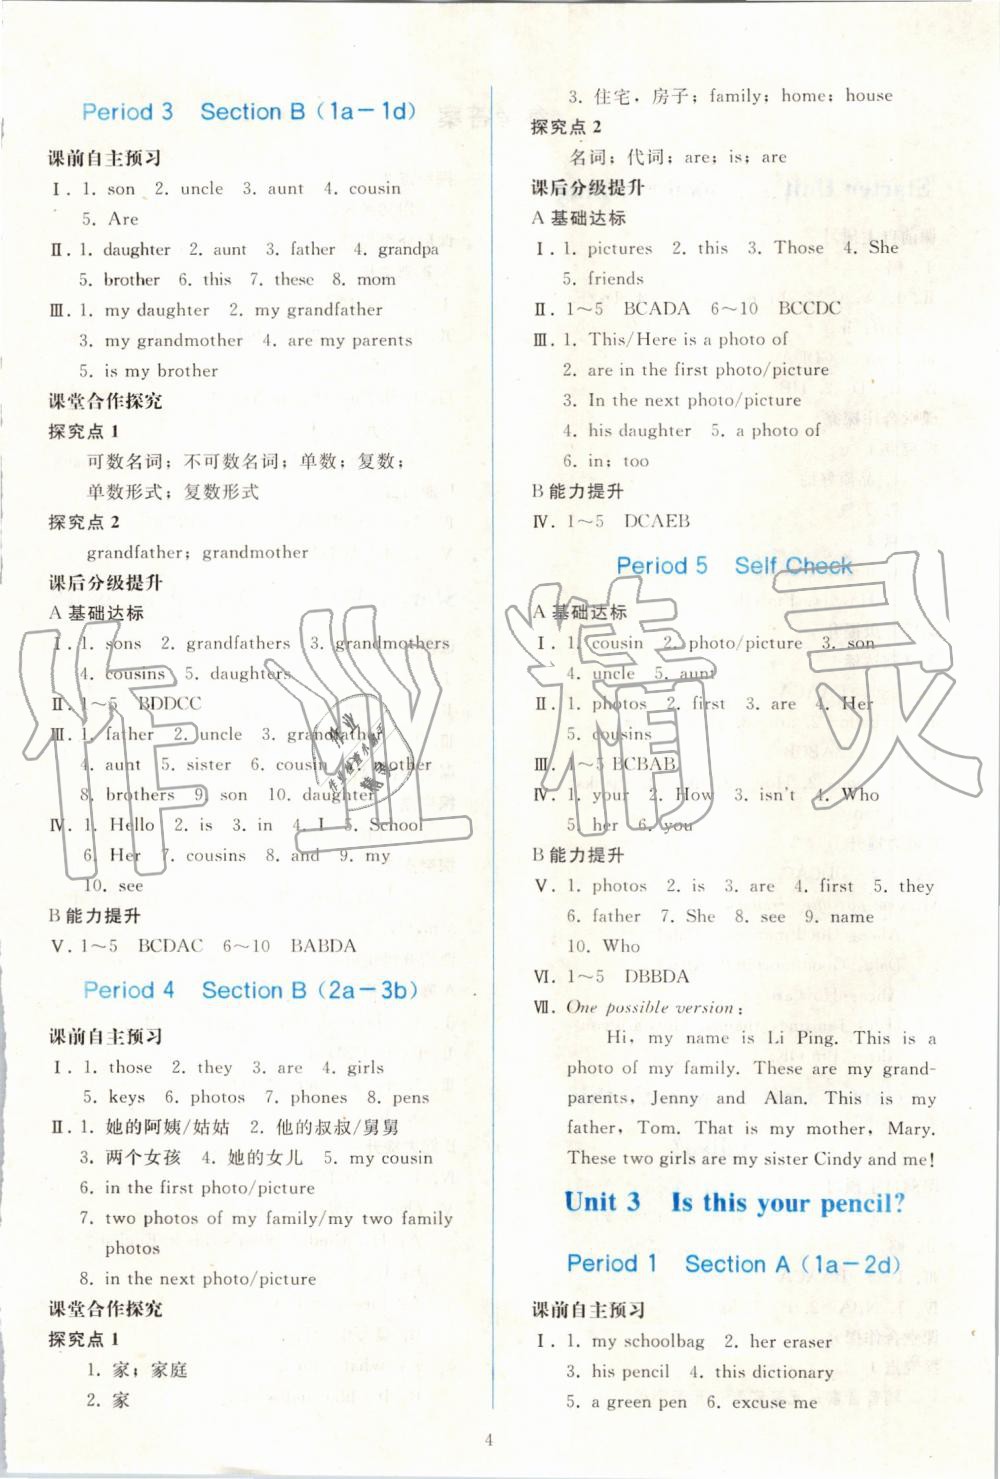 Period 3 Section B (1a－1d)
课前自主预习
Ⅰ. 1. son 2. uncle 3. aunt 4. cousin
5. Are
Ⅱ. 1. daughter 2. aunt 3. father 4. grandpa
5. brother 6. this 7. these 8. mom
Ⅲ. 1. my daughter 2. my grandfather
3. my grandmother 4. are my parents
5. is my brother
课堂合作探究
探究点 1
可数名词；不可数名词；单数；复数；
单数形式；复数形式
探究点 2
grandfather；grandmother
课后分级提升
A 基础达标
Ⅰ. 1. sons 2. grandfathers 3. grandmothers
4. cousins 5. daughters
Ⅱ. 1～5 BDDCC
Ⅲ. 1. father 2. uncle 3. grandfather
4. aunt 5. sister 6. cousin 7. mother
8. brothers 9. son 10. daughter
Ⅳ. 1. Hello 2. is 3. in 4. I 5. School
6. Her 7. cousins 8. and 9. my
10. see
B 能力提升
Ⅴ. 1～5 BCDAC 6～10 BABDA
Period 4 Section B (2a－3b)
课前自主预习
Ⅰ. 1. those 2. they 3. are 4. girls
5. keys 6. photos 7. phones 8. pens
Ⅱ. 1. 她的阿姨/姑姑 2. 他的叔叔/舅舅
3. 两个女孩 4. 她的女儿 5. my cousin
6. in the first photo/picture
7. two photos of my family/my two family
photos
8. in the next photo/picture
课堂合作探究
探究点 1
1. 家；家庭
2. 家
3. 住宅，房子；family；home；house
探究点 2
名词；代词；are；is；are
课后分级提升
A 基础达标
Ⅰ. 1. pictures 2. this 3. Those 4. She
5. friends
Ⅱ. 1～5 BCADA 6～10 BCCDC
Ⅲ. 1. This/Here is a photo of
2. are in the first photo/picture
3. In the next photo/picture
4. his daughter 5. a photo of
6. in；too
B 能力提升
Ⅳ. 1～5 DCAEB
Period 5 Self Check
A 基础达标
Ⅰ. 1. cousin 2. photo/picture 3. son
4. uncle 5. aunt
Ⅱ. 1. photos 2. first 3. are 4. Her
5. cousins
Ⅲ. 1～5 BCBAB
Ⅳ. 1. your 2. How 3. isn't 4. Who
5. her 6. you
B 能力提升
Ⅴ. 1. photos 2. is 3. are 4. first 5. they
6. father 7. She 8. see 9. name
10. Who
Ⅵ. 1～5 DBBDA
Ⅶ. One possible version：
Hi, my name is Li Ping. This is a
photo of my family. These are my grand-
parents, Jenny and Alan. This is my
father, Tom. That is my mother, Mary.
These two girls are my sister Cindy and me!
Unit 3 Is this your pencil?
Period 1 Section A (1a－2d)
课前自主预习
Ⅰ. 1. my schoolbag 2. her eraser
3. his pencil 4. this dictionary
5. a green pen 6. excuse me
4
作业精灵